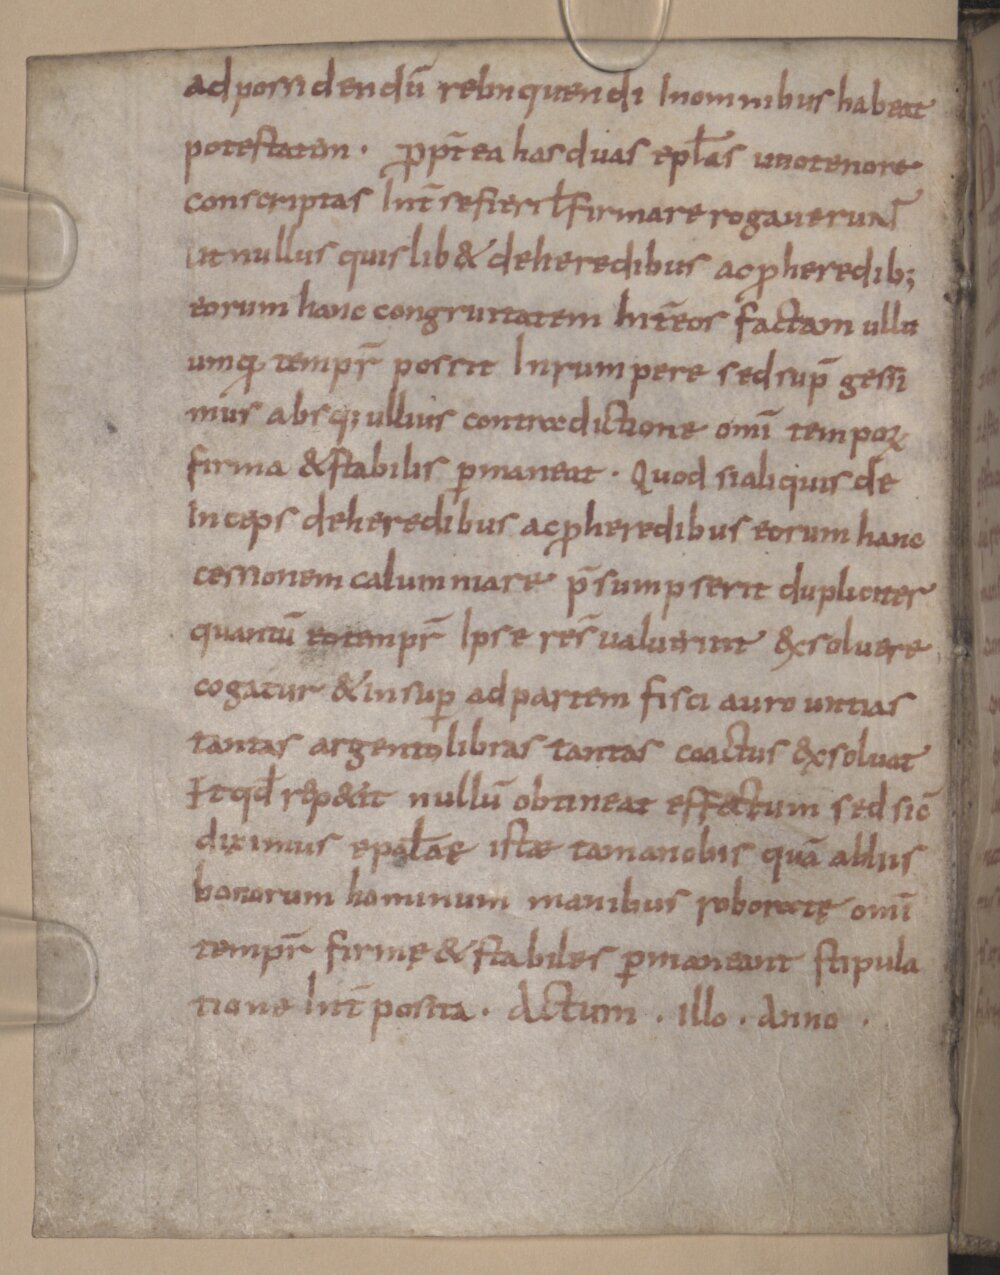 ad possidendū relinquendi In omnibus habeat
potestatem · ꝓpt̄ ea has duas epl̄as uno tenore
conscriptas Int̄ se fieri ł firmare rogauerunt
ut nullus quislib& de heredibus ac ꝓheredib;
eorum hanc congruitatem Int̄ eos factam ullu
umq, tempr̄ possit Inrumpere sed sup̄ gessi
mus absq; ullius contradictione omī tempoꝝ
firma & stabilis ꝑmaneat · Quod si aliquis de
Inceps de heredibus ac ꝓheredibus eorum hanc
cessionem calumniare p̄sumpserit dupliciter
quantū eo tempr̄ Ipse res̄ ualuerint &xsoluere
cogatur & insuꝑ ad partem fisci auro untias
tantas argento libras tantas coactus &xsoluat
Et qd̄ rep&it nullū obtineat effectum sed sic̄
diximus epal̄ae istae tam a nobis quā aliis
bonorum hominum manibus roboratę omī
tempr̄ firmę & stabiles ꝑmaneant stipula
tione Int̄ posita · Actum · illo · Anno ·